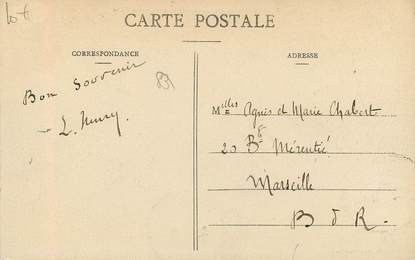 Lot
CARTE POSTALE
CORRESPONDANCE
ADRESSE
Bon Souvenir
M^elles Agnès et Marie Chabert
20 B^d Mérentié
Marseille
B d R.